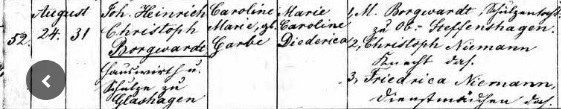 52. August 24. 31
Joh. Heinrich Christoph Borgwardt
Hauswirth u. Schulze zu Glashagen
Caroline Marie, gb. Garbe
Marie Caroline Diederica
1, M. Borgwardt, Schulzen
zu Ob. Steffenshagen.
2, Christoph Niemann
Knecht das.
3, Friedrica Niemann,
Dienstmädchen das.